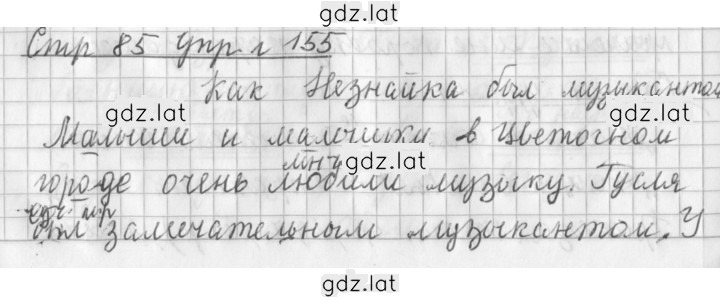 gdz.lat
Стр 85 Упр. 155
Как Незнайка был музыкантом
gdz.lat gdz.lat
Малыши и малышки в Цветочном
мн ч
городе очень любили музыку. Гусля
gdz.lat gdz.lat
ед ч м р
был замечательным музыкантом. У
gdz.lat